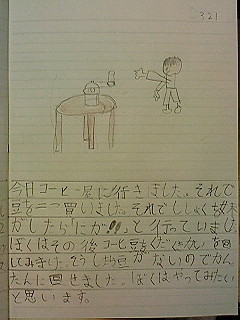 321
今日コーヒー屋に行きました。それで
豆を二つ買いました。それでししょく
がしたら「にが!!」と行っていました
ぼくはその後コーヒ豆を
してみました。そうしたら豆がないのでかん
たんに回せました。ぼくはやってみたい
と思います。